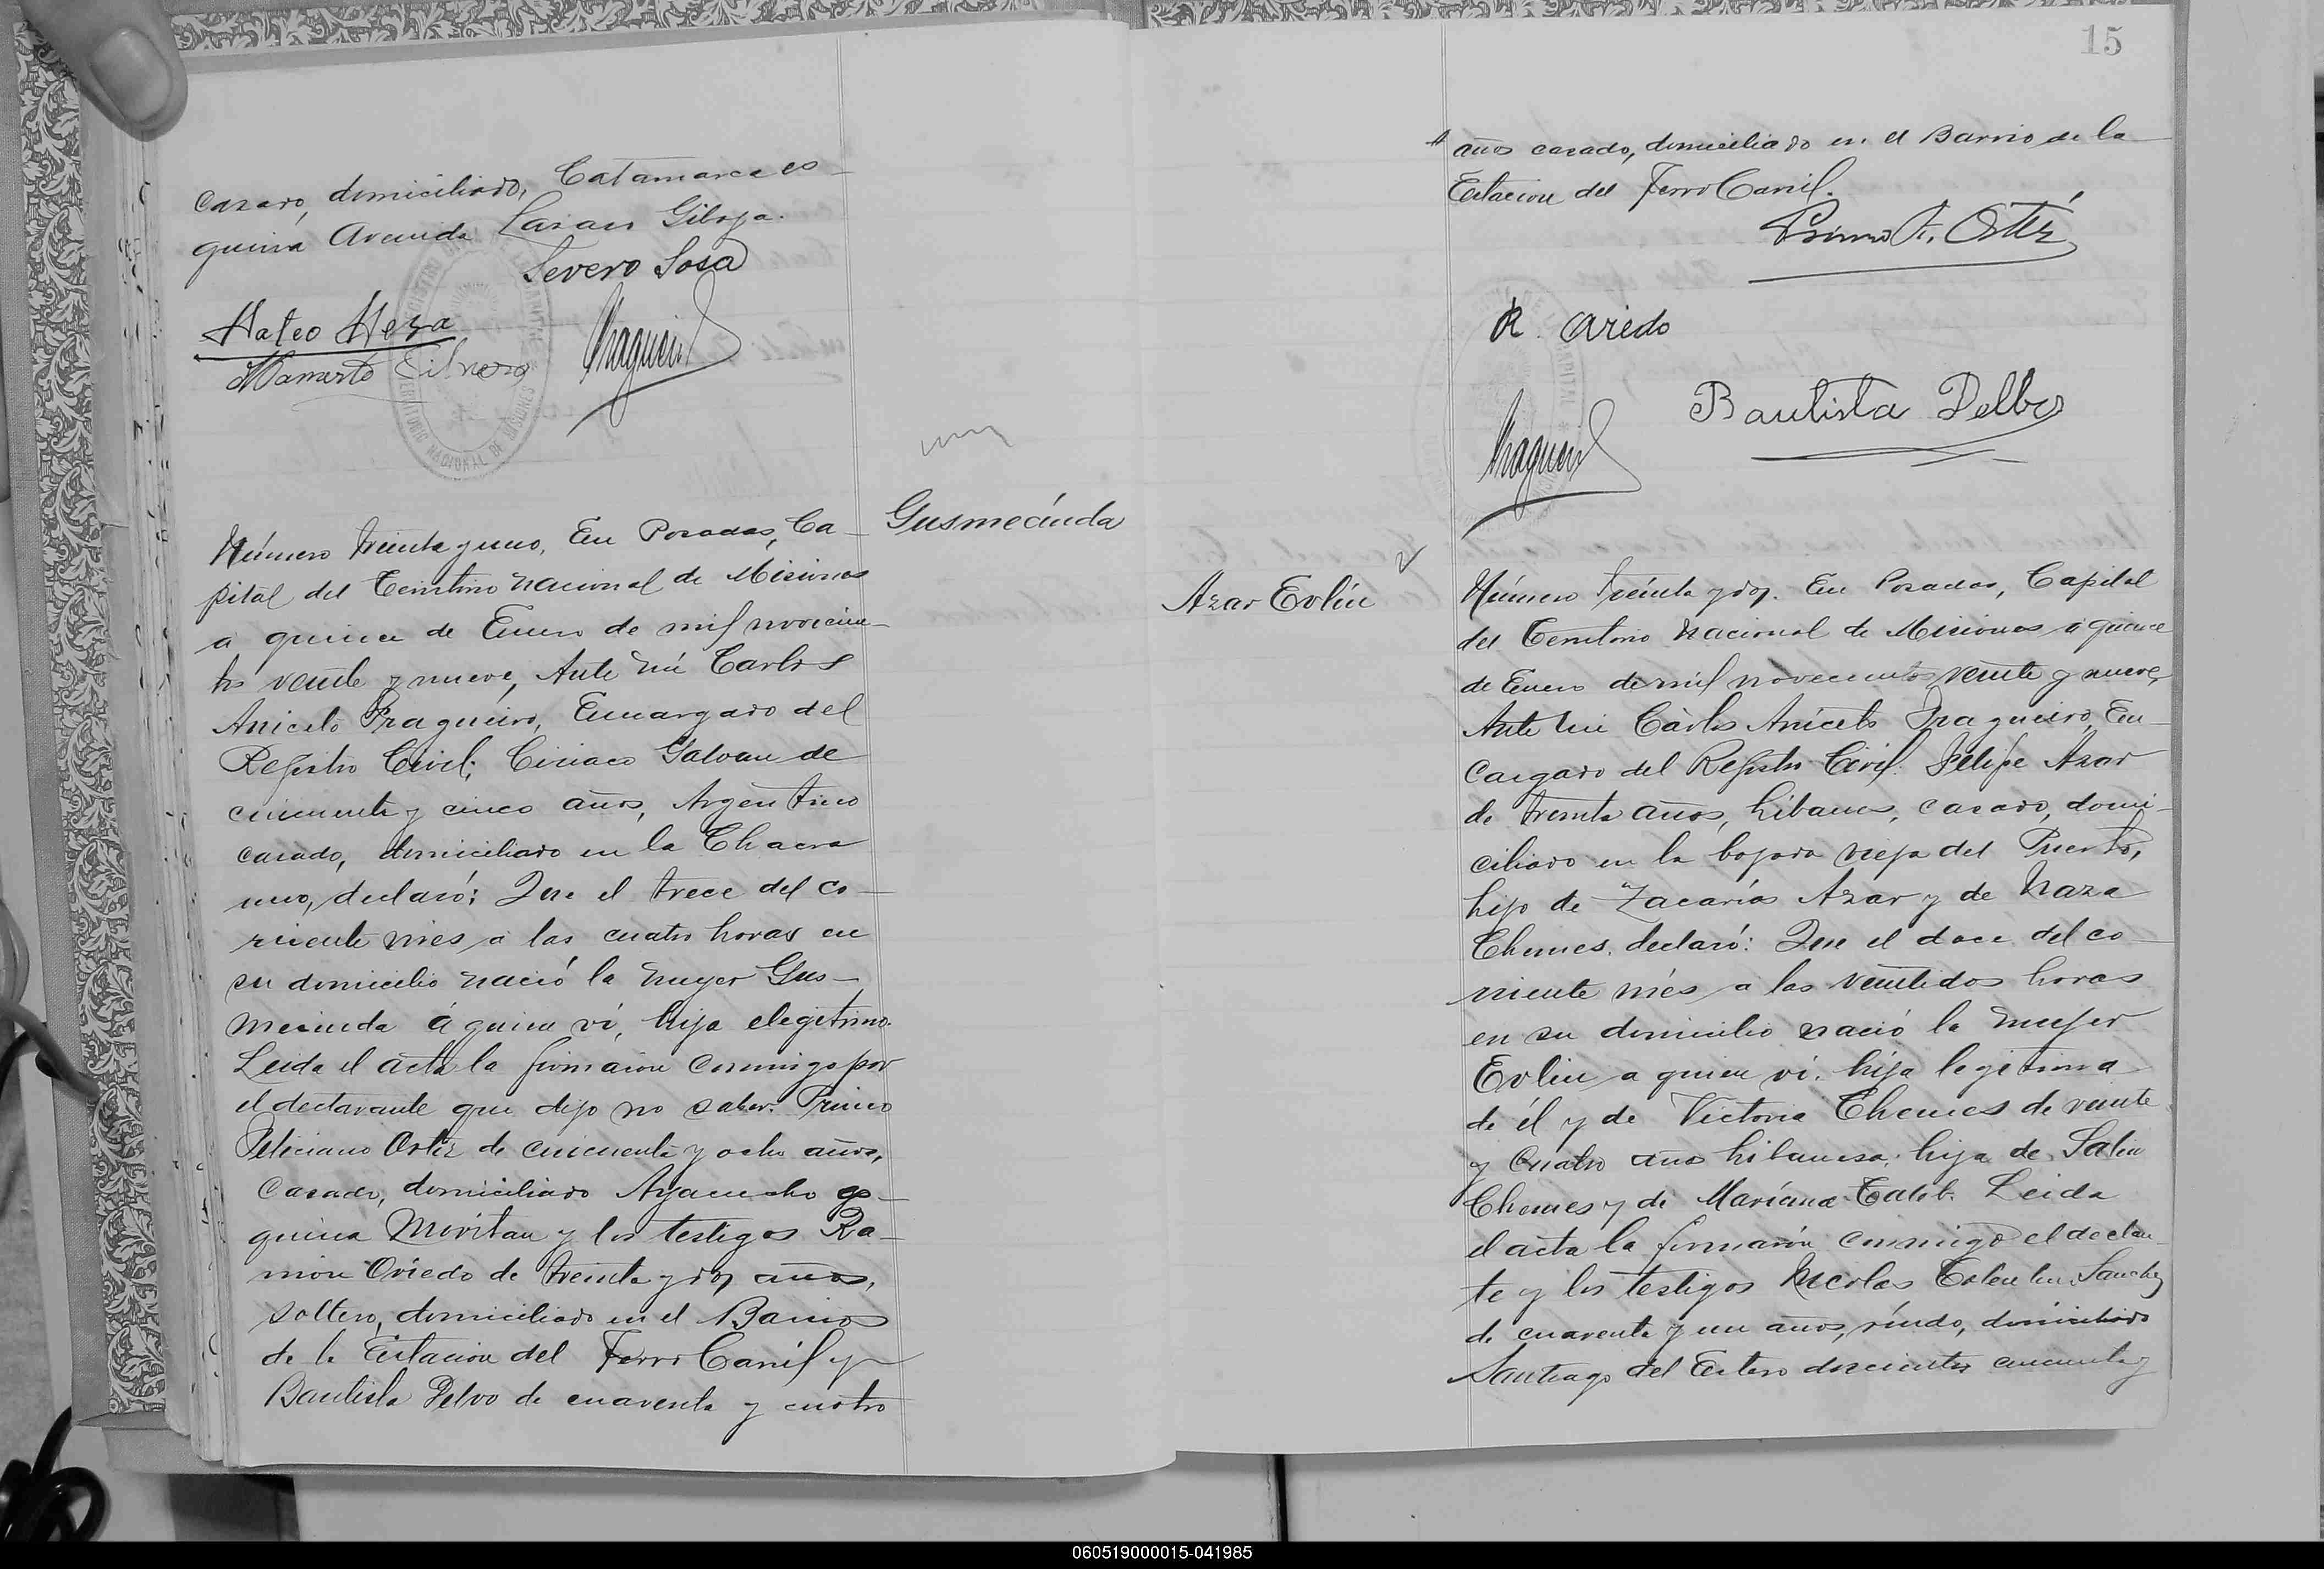 casado, domiciliado, Catamarca es-
quina Avenida Lazaro
Severo Sosa
Mateo Meza
Mamerto
Fragueiro
TERRITORIO NACIONAL DE MISIONES
Gusmecinda
Número treinta y uno, En Posadas, Ca-
pital del Territorio Nacional de Misiones
a quince de Enero de mil novecien-
tos veinte y nueve, Ante mí Carlos
Aniceto Fragueiro, Encargado del
Registro Civil; Ciriaco Galvan de
cincuenta y cinco años, Argentino
casado, domiciliado en la Chacra
uno, declaró: Que el trece del co-
rriente mes a las cuatro horas en
su domicilio nació la mujer Gus-
mecinda á quien ví, hija elegitima.
Leida el acta la firmaron conmigo por
el declarante que dijo no saber. Primo
Feliciano Ortiz de cincuenta y ocho años,
casado, domiciliado Ayacucho es-
quina y los testigos Ra-
món Oviedo de treinta y dos años,
soltero, domiciliado en el Barrio
de la Estacion del Ferro Carril y
Bautista Delvo de cuarenta y cuatro
15
años casado, domiciliado en el Barrio de la
Estacion del Ferro Carril.
Primo F. Ortiz
R. Oviedo
Bautista Delbo
Fragueiro
Azar Evlin
Número treinta y dos. En Posadas, Capital
del Territorio Nacional de Misiones a quince
de Enero de mil novecientos veinte y nueve,
Ante mi Carlos Aniceto Fragueiro, En-
cargado del Registro Civil: Felipe Azar
de treinta años, Libanes, casado, domi-
ciliado en la bajada vieja del Puerto,
hijo de Zacarías Azar y de Naza
Chemes, declaró: Que el doce del co-
rriente més a las veintidos horas
en su domicilio nació la mujer
Evlin a quien ví, hija legitima
de él y de Victoria Chemes de veinte
y cuatro años libanesa, hija de Salin
Chemes y de Maríana Leida
el acta la firmarón conmigo el declaran-
te y los testigos Nicolas Tolentin Sanchez
de cuarenta y un años, viudo, domiciliado
Santiago del Estero doscientos cincuenta y
060519000015-041985